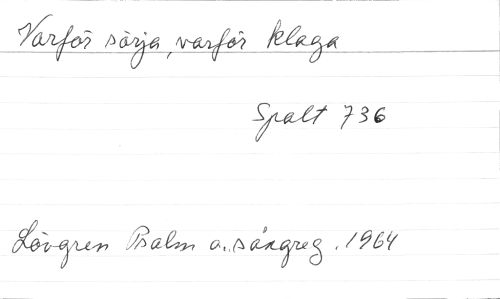 Varför sörja, varför klaga
Spalt 736
Lövgren Psalm o. sångreg. 1964